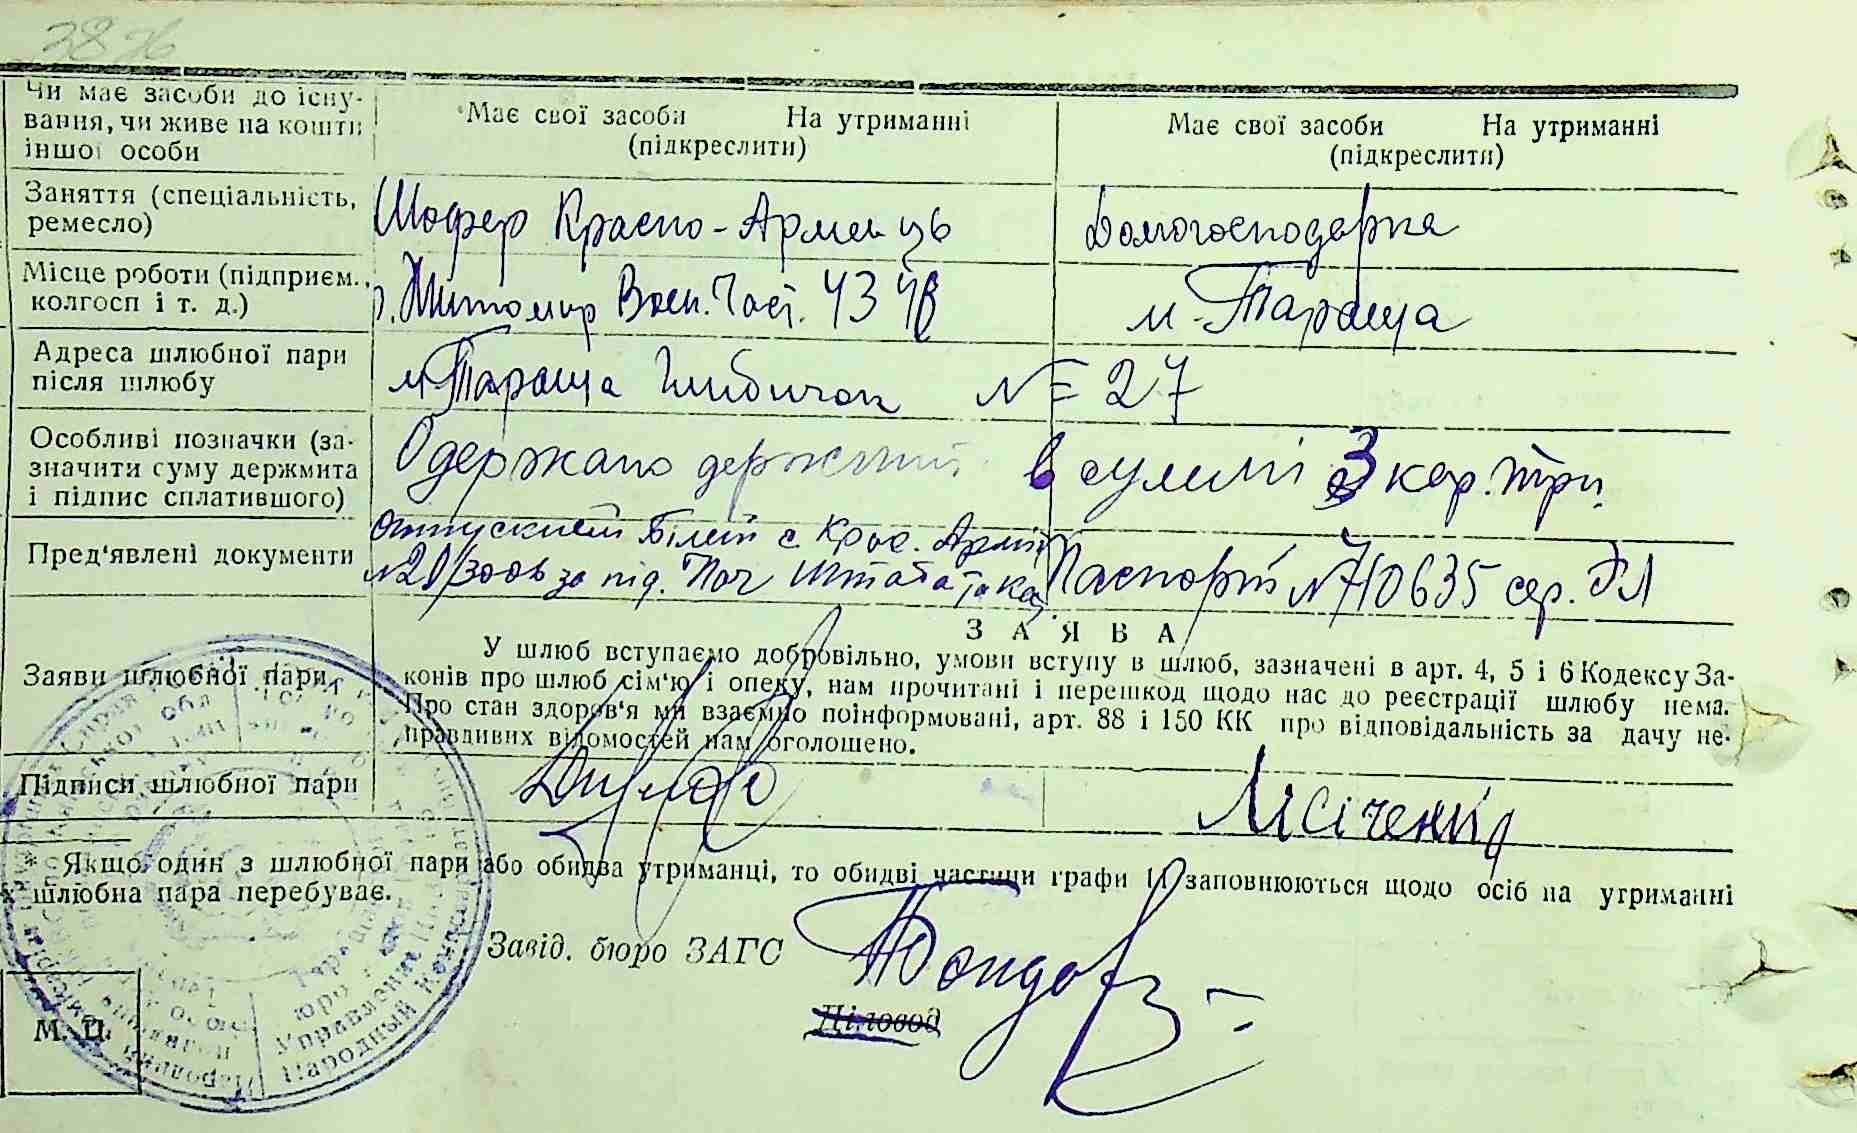 3876
Чи має засоби до існу-
вання, чи живе на кошти
іншої особи
Має свої засоби На утриманні
(підкреслити)
Має свої засоби На утриманні
(підкреслити)
Заняття (спеціальність,
ремесло)
Шофер Красно-Армеиць
Домогосподарка
Місце роботи (підприєм.,
колгосп і т. д.)
г. Житомир Воен. Част. 4348
м. Тараща
Адреса шлюбної пари
після шлюбу
м. Тараща № 27
Особливі позначки (за-
значити суму держмита
і підпис сплатившого)
Одержано держмит в сумі 3 кар. три
Пред'явлені документи
Отпускний білет с Крас. Армії
за під. Поч Штаба
Паспорт № 710635 сер.
Заяви шлюбної пари
ЗАЯВА
У шлюб вступаємо добровільно, умови вступу в шлюб, зазначені в арт. 4, 5 і 6 Кодексу За-
конів про шлюб сім'ю і опеку, нам прочитані і перешкод щодо нас до реєстрації шлюбу нема.
Про стан здоров'я ми взаємно поінформовані, арт. 88 і 150 КК про відповідальність за дачу не-
правдивих відомостей нам оголошено.
Підписи шлюбної пари
* Якщо один з шлюбної пари або обидва утриманці, то обидві частини графи заповнюються щодо осіб на утриманні
х шлюбна пара перебуває.
Завід. бюро ЗАГС
Діловод
М. П.
бюро
Управление
Народный